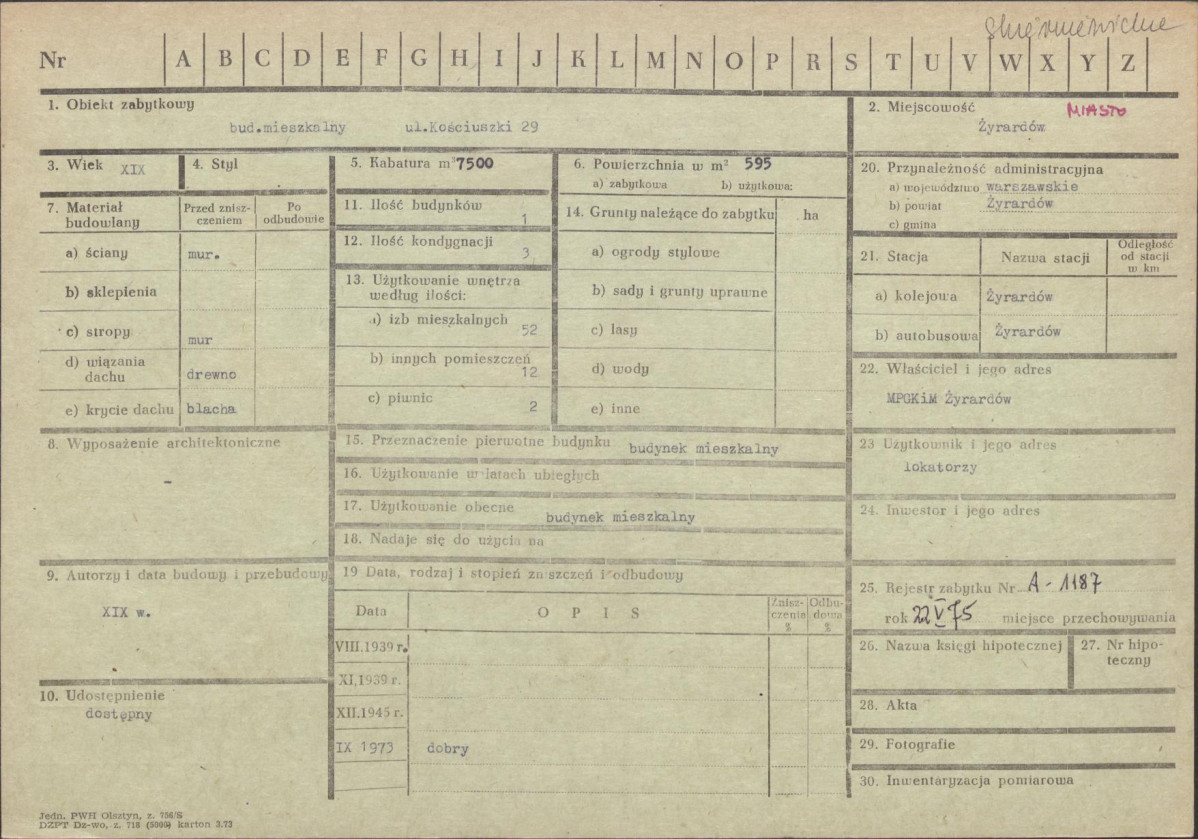 Skierniewickie
Nr A B C D E F G H I J K L M N O P R S T U V W X Y Z
1. Obiekt zabytkowy
bud.mieszkalny ul.Kościuszki 29
2. Miejscowość MIASTO
Żyrardów
3. Wiek XIX
4. Styl
5. Kabatura m³ 7500
6. Powierzchnia w m² 595
a) zabytkowa b) użytkowa:
7. Materiał budowlany
Przed zniszczeniem
Po odbudowie
a) ściany mur.
b) sklepienia
c) stropy mur
d) wiązania dachu drewno
e) krycie dachu blacha
8. Wyposażenie architektoniczne
-
9. Autorzy i data budowy i przebudowy
XIX w.
10. Udostępnienie
dostępny
11. Ilość budynków 1
12. Ilość kondygnacji 3
13. Użytkowanie wnętrza
według ilości:
a) izb mieszkalnych 52
b) innych pomieszczeń 12
c) piwnic 2
14. Grunty należące do zabytku ha
a) ogrody stylowe
b) sady i grunty uprawne
c) lasy
d) wody
e) inne
15. Przeznaczenie pierwotne budynku budynek mieszkalny
16. Użytkowanie w latach ubiegłych
17. Użytkowanie obecne budynek mieszkalny
18. Nadaje się do użycia na
19 Data, rodzaj i stopień zniszczeń i odbudowy
Data OPIS Zniszczenia % Odbudowa %
VIII.1939 r.
XI.1939 r.
XII.1945 r.
IX 1973 dobry
20. Przynależność administracyjna
a) województwo warszawskie
b) powiat Żyrardów
c) gmina
21. Stacja Nazwa stacji Odległość od stacji w km
a) kolejowa Żyrardów
b) autobusowa Żyrardów
22. Właściciel i jego adres
MPGKiM Żyrardów
23 Użytkownik i jego adres
lokatorzy
24. Inwestor i jego adres
25. Rejestr zabytku Nr A-1187
rok 22 V 75 miejsce przechowywania
26. Nazwa księgi hipotecznej
27. Nr hipoteczny
28. Akta
29. Fotografie
30. Inwentaryzacja pomiarowa
Jedn. PWH Olsztyn, z. 756/S
DZPT Dz-wo, z. 718 (5000) karton 3.73